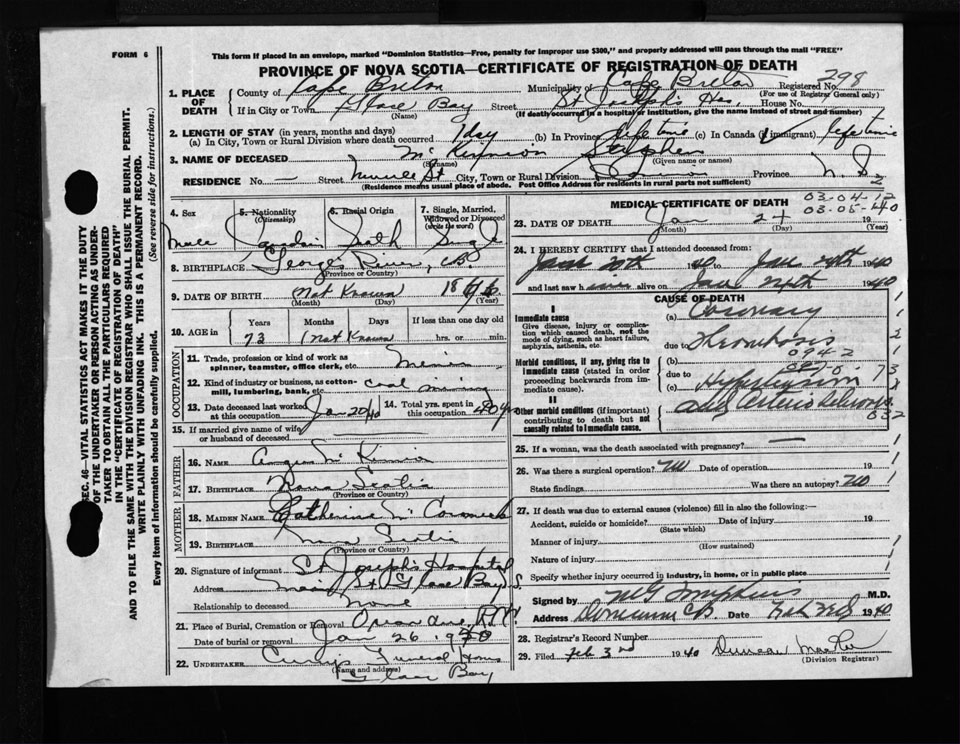 FORM 6
This form if placed in an envelope, marked "Dominion Statistics—Free, penalty for improper use $300," and properly addressed will pass through the mail "FREE"
PROVINCE OF NOVA SCOTIA—CERTIFICATE OF REGISTRATION OF DEATH
SEC. 46—VITAL STATISTICS ACT MAKES IT THE DUTY
OF THE UNDERTAKER OR PERSON ACTING AS UNDER-
TAKER TO OBTAIN ALL THE PARTICULARS REQUIRED
IN THE "CERTIFICATE OF REGISTRATION OF DEATH"
AND TO FILE THE SAME WITH THE DIVISION REGISTRAR WHO SHALL ISSUE THE BURIAL PERMIT.
WRITE PLAINLY WITH UNFADING INK. THIS IS A PERMANENT RECORD.
Every item of information should be carefully supplied. (See reverse side for instructions.)
1. PLACE OF DEATH
County of Cape Breton Municipality of Cape Breton Registered No. 298
(For use of Registrar General only)
If in City or Town Glace Bay Street St Joseph's Hos. House No.
(Name) (If death occurred in a hospital or institution, give the name instead of street and number)
2. LENGTH OF STAY (in years, months and days)
(a) In City, Town or Rural Division where death occurred 1 day (b) In Province lifetime (c) In Canada (if immigrant) lifetime
3. NAME OF DECEASED McKinnon Stephen
(Surname) (Given name or names)
RESIDENCE No. — Street St City, Town or Rural Division Province N. S.
(Residence means usual place of abode. Post Office Address for residents in rural parts not sufficient)
4. Sex
5. Nationality (Citizenship)
6. Racial Origin
7. Single, Married, Widowed or Divorced (write the word)
Male Canadian Scotch Single
8. BIRTHPLACE Georges River, C.B.
(Province or Country)
9. DATE OF BIRTH Not Known 18
(Month) (Day) (Year)
10. AGE in
Years Months Days If less than one day old
73 Not Known hrs. or min.
OCCUPATION
11. Trade, profession or kind of work as spinner, teamster, office clerk, etc. Miner
12. Kind of industry or business, as cotton-mill, lumbering, bank, etc. Coal Mining
13. Date deceased last worked at this occupation Jan 20/40
14. Total yrs. spent in this occupation 40
15. If married give name of wife or husband of deceased
FATHER
16. Name Angus McKinnon
17. BIRTHPLACE Nova Scotia
(Province or Country)
MOTHER
18. MAIDEN NAME Catherine McCormick
19. BIRTHPLACE Nova Scotia
(Province or Country)
20. Signature of informant St Joseph's Hospital
Address St Glace Bay
Relationship to deceased None
21. Place of Burial, Cremation or Removal
Date of burial or removal Jan 26 1940
22. UNDERTAKER Curry's Funeral Home
(Name and address)
Glace Bay
MEDICAL CERTIFICATE OF DEATH
03-04-
03-05-40
23. DATE OF DEATH Jan 24 19
(Month) (Day) (Year)
24. I HEREBY CERTIFY that I attended deceased from:
Jan 20th 40 to Jan 24th 1940
and last saw h alive on Jan 24th 1940
CAUSE OF DEATH
I
Immediate cause
Give disease, injury or complication which caused death, not the mode of dying, such as heart failure, asphyxia, asthenia, etc.
(a) Coronary
due to Thrombosis
0942
Morbid conditions, if any, giving rise to Immediate cause (stated in order proceeding backwards from immediate cause).
(b)
due to
(c) Hypertension
II
Other morbid conditions (if important) contributing to death but not causally related to Immediate cause.
and Arterio Sclerosis
032
25. If a woman, was the death associated with pregnancy? —
26. Was there a surgical operation? no Date of operation 19
State findings Was there an autopsy? no
27. If death was due to external causes (violence) fill in also the following:—
Accident, suicide or homicide? Date of injury 19
(State which)
Manner of injury
(How sustained)
Nature of injury
Specify whether injury occurred in industry, in home, or in public place
Signed by M.G. Tompkins M.D.
Address Dominion C.B. Date Feb 1940
28. Registrar's Record Number
29. Filed Feb 3rd 1940 Duncan
(Division Registrar)